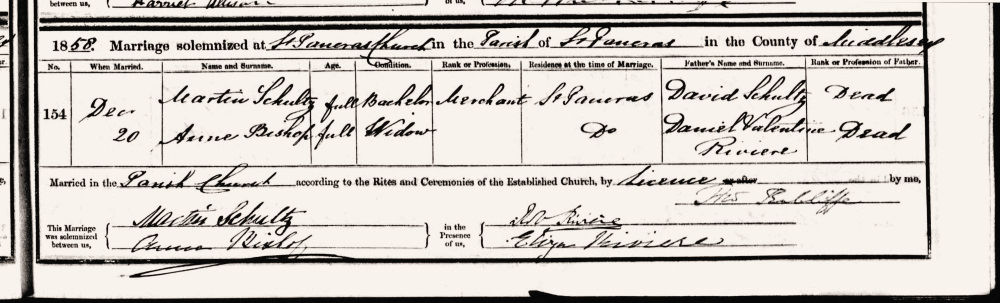 between us,
Harriet Allison
of us,
1858. Marriage solemnized at St Pancras Church in the Parish of St Pancras in the County of Middlesex
No. When Married. Name and Surname. Age. Condition. Rank or Profession. Residence at the time of Marriage. Father's Name and Surname. Rank or Profession of Father.
154 Decr 20 Martin Schultz full Bachelor Merchant St Pancras David Schultz Dead
Anne Bishop full Widow Do Daniel Valentine Riviere Dead
Married in the Parish Church according to the Rites and Ceremonies of the Established Church, by Licence or after by me,
This Marriage was solemnized between us, Martin Schultz Anna Bishop in the Presence of us, Riviere Eliza Riviere